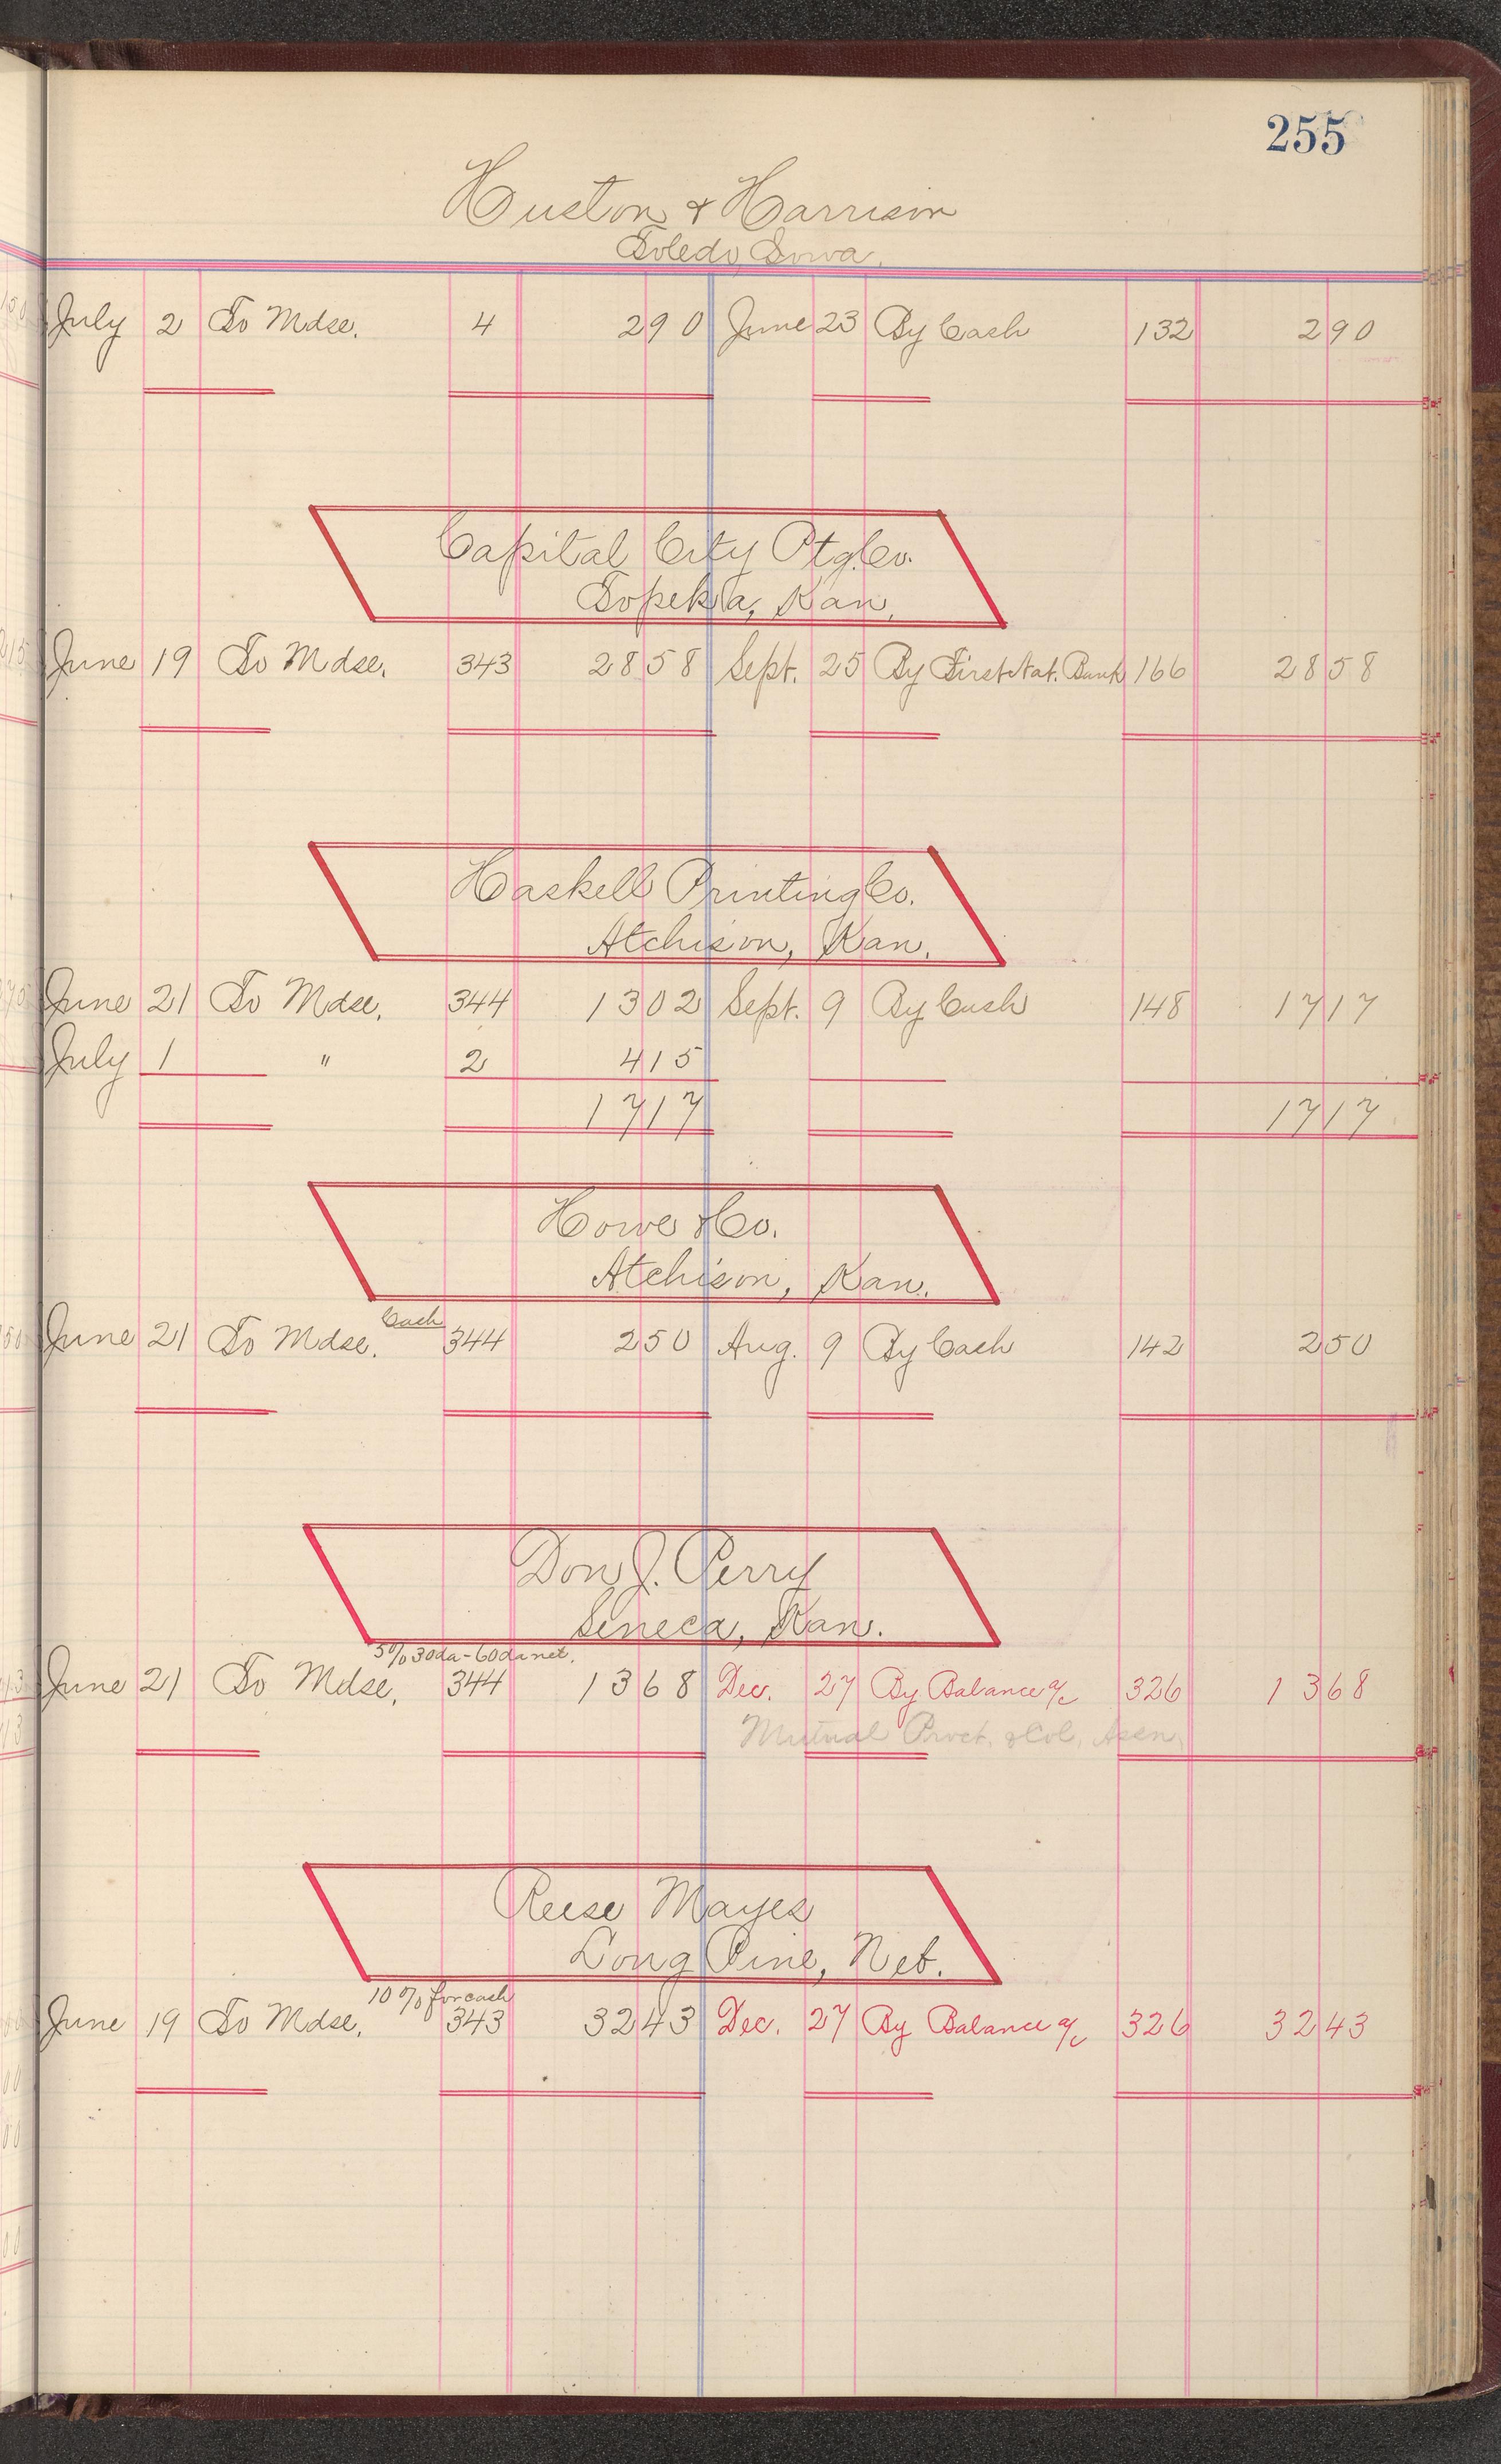 255
Huston & Harrison
Toledo, Iowa.
July 2 To Mdse. 4 2 90 June 23 By Cash 132 2 90
Capital City Ptg. Co.
Topeka, Kan.
June 19 To Mdse. 343 28 58 Sept. 25 By First Nat. Bank 166 28 58
Haskell Printing Co.
Atchison, Kan.
June 21 To Mdse. 344 13 02 Sept. 9 By Cash 148 17 17
July 1 " 2 4 15
17 17 17 17
Howe & Co.
Atchison, Kan.
Cash
June 21 To Mdse. 344 2 50 Aug. 9 By Cash 142 2 50
Don J. Perry
Seneca, Kan.
5% 30da-60da net.
June 21 To Mdse. 344 13 68 Dec. 27 By Balance a/c 326 13 68
Mutual Proct. & Col. Assn.
Reese Mayes
Long Pine, Neb.
10% for cash
June 19 To Mdse. 343 32 43 Dec. 27 By Balance a/c 326 32 43